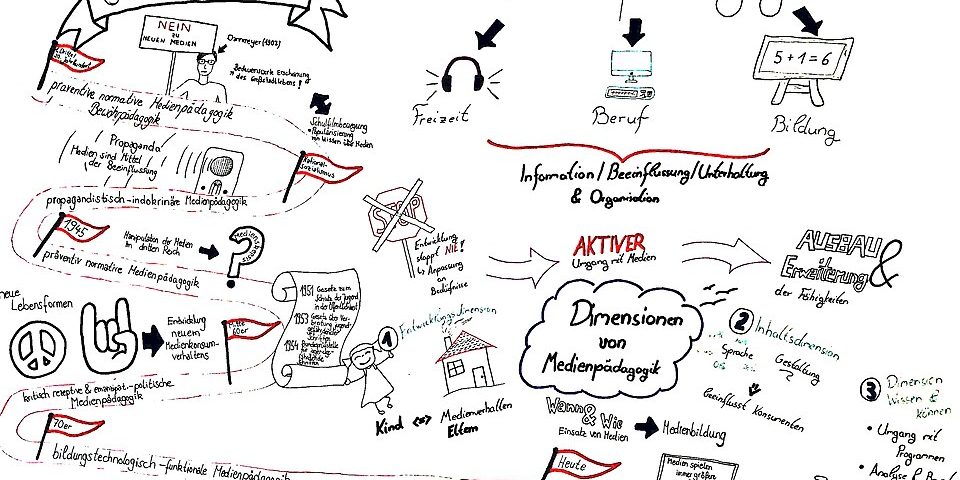 NEIN
ZU
NEUEN MEDIEN
präventive normative Medienpädagogik
Bewahrpädagogik
des Großstadtlebens!
Schulfilmbewegung
Popularisierung
von Wissen über Medien
Propaganda
Medien sind Mittel
der Beeinflussung
National-
sozialismus
propagandistisch-indokrinäre Medienpädagogik
1945
Manipulation der Medien
im dritten Reich
präventiv normative Medienpädagogik
neue
Lebensformen
Entwicklung
neuem
Medienkonsum-
verhaltens
Mitte
60er
kritisch rezeptive & emanzipat.-politische
Medienpädagogik
70er
bildungstechnologisch-funktionale Medienpädagogik
1951 Gesetz zum
Schutz der Jugend
in der Öffentlichkeit
1953
1954
STOP
Entwicklung
stoppt NIE!
Anpassung
an
Bedürfnisse
1 Entwicklungsdimension
Kind <=> Medienverhalten
Eltern
Freizeit
Beruf
5+1=6
Bildung
Information/Beeinflussung/Unterhaltung
& Organisation
AKTIVER
Umgang mit Medien
AUSBAU &
Erweiterung
der Fähigkeiten
Dimensionen
von
Medienpädagogik
2 Inhaltsdimension
Sprache Gestaltung
Geeinflusst Konsumenten
3 Dimension
Wissen &
können
• Umgang mit
Programmen
• Analyse &
Wann & Wie
Einsatz von Medien
Medienbildung
Heute
Medien spielen
immer größere